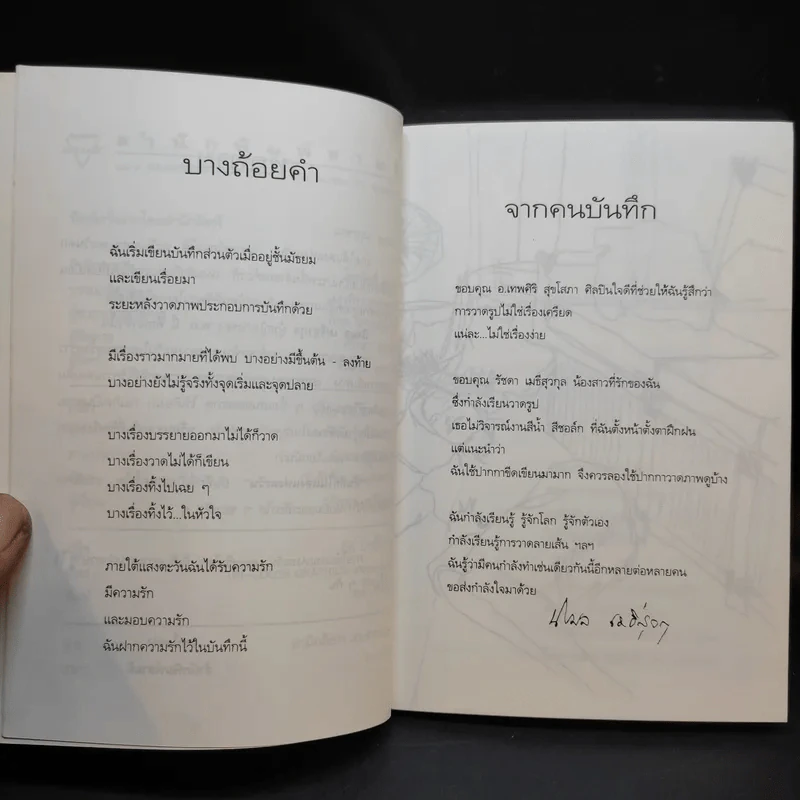 บางถ้อยคำ
ฉันเริ่มเขียนบันทึกส่วนตัวเมื่ออยู่ชั้นมัธยม
และเขียนเรื่อยมา
ระยะหลังวาดภาพประกอบการบันทึกด้วย
มีเรื่องราวมากมายที่ได้พบ บางอย่างมีขึ้นต้น - ลงท้าย
บางอย่างยังไม่รู้จริงทั้งจุดเริ่มและจุดปลาย
บางเรื่องบรรยายออกมาไม่ได้ก็วาด
บางเรื่องวาดไม่ได้ก็เขียน
บางเรื่องทิ้งไปเฉย ๆ
บางเรื่องทิ้งไว้...ในหัวใจ
ภายใต้แสงตะวันฉันได้รับความรัก
มีความรัก
และมอบความรัก
ฉันฝากความรักไว้ในบันทึกนี้
จากคนบันทึก
ขอบคุณ อ.เทพศิริ สุขโสภา ศิลปินใจดีที่ช่วยให้ฉันรู้สึกว่า
การวาดรูปไม่ใช่เรื่องเครียด
แน่ละ...ไม่ใช่เรื่องง่าย
ขอบคุณ รัชดา เมธีสุวกุล น้องสาวที่รักของฉัน
ซึ่งกำลังเรียนวาดรูป
เธอไม่วิจารณ์งานสีน้ำ สีชอล์ก ที่ฉันตั้งหน้าตั้งตาฝึกฝน
แต่แนะนำว่า
ฉันใช้ปากกาขีดเขียนมามาก จึงควรลองใช้ปากกาวาดภาพดูบ้าง
ฉันกำลังเรียนรู้ รู้จักโลก รู้จักตัวเอง
กำลังเรียนรู้การวาดลายเส้น ฯลฯ
ฉันรู้ว่ามีคนกำลังทำเช่นเดียวกันนี้อีกหลายต่อหลายคน
ขอส่งกำลังใจมาด้วย